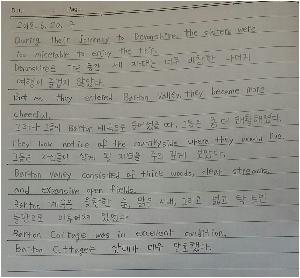 During their journey to Devonshire, the sisters were
too miserable to enjoy the trip.
Devonshire로 가는 동안 세 자매는 너무 비참한 나머지
여행이 즐겁지 않았다.
But as they entered Barton Valley, they became more
cheerful.
그러나 그들이 Barton 계곡으로 들어섰을 때, 그들은 좀 더 쾌활해졌다.
They took notice of the countryside where they would live.
그들은 자신들이 살게 될 시골을 주의 깊게 보았다.
Barton Valley consisted of thick woods, clear streams
and expansive open fields.
Barton 계곡은 울창한 숲, 맑은 시내, 그리고 넓고 탁 트인
들판으로 이루어져 있었다.
Barton Cottage was in excellent condition.
Barton Cottage는 상태가 매우 훌륭했다.